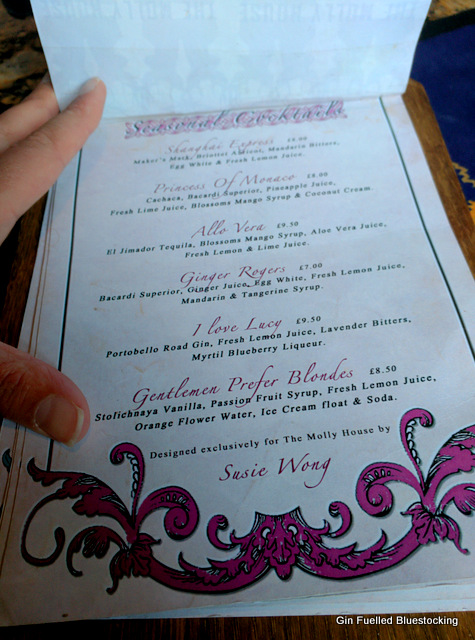 Seasonal Cocktails
Shanghai Express £8.00
Maker's Mark, Briottet Apricot, Mandarin Bitters,
Egg White & Fresh Lemon Juice.
Princess Of Monaco £8.00
Cachaca, Bacardi Superior, Pineapple Juice,
Fresh Lime Juice, Blossoms Mango Syrup & Coconut Cream.
Allo Vera £9.50
El Jimador Tequila, Blossoms Mango Syrup, Aloe Vera Juice,
Fresh Lemon & Lime Juice.
Ginger Rogers £7.00
Bacardi Superior, Ginger Juice, Egg White, Fresh Lemon Juice,
Mandarin & Tangerine Syrup.
I love Lucy £9.50
Portobello Road Gin, Fresh Lemon Juice, Lavender Bitters,
Myrtil Blueberry Liqueur.
Gentlemen Prefer Blondes £8.50
Stolichnaya Vanilla, Passion Fruit Syrup, Fresh Lemon Juice,
Orange Flower Water, Ice Cream float & Soda.
Designed exclusively for The Molly House by
Susie Wong
Gin Fuelled Bluestocking